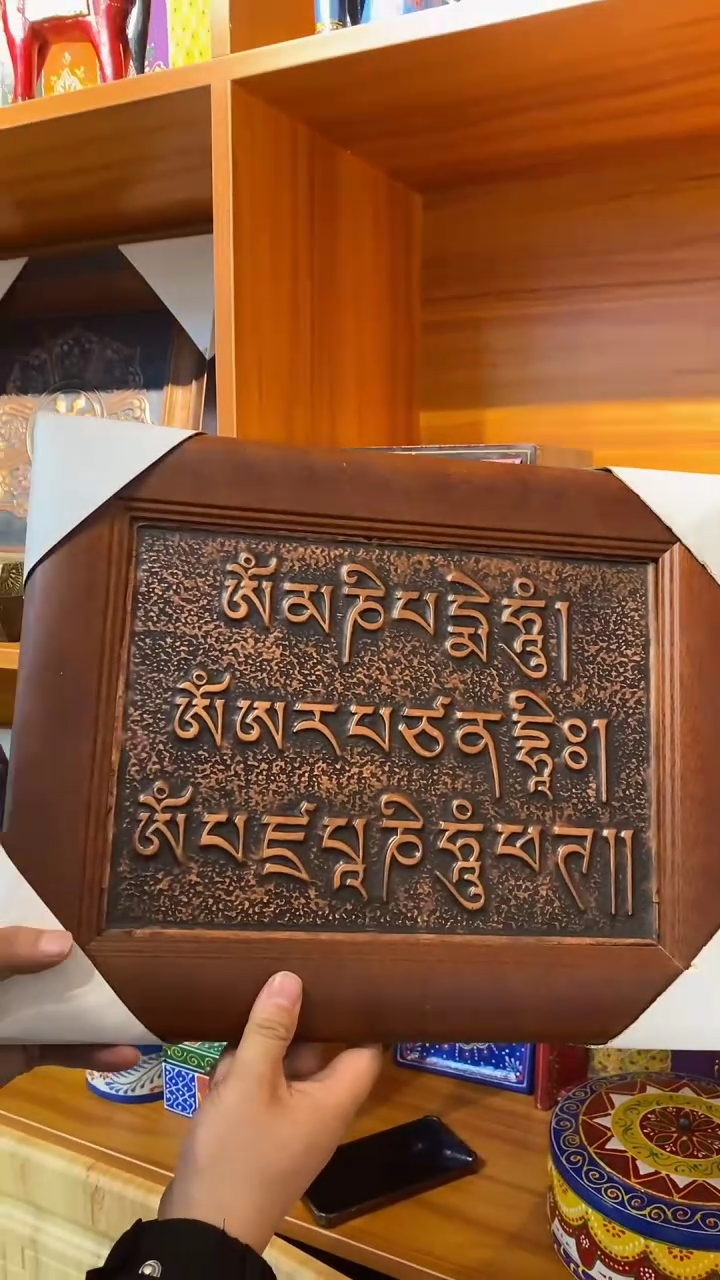 ཨོཾམཎིཔདྨེཧཱུྃ།
ཨོཾཨརཔཙནདྷཱིཿ།
ཨོཾབཛྲཔཱཎིཧཱུྃཕཏ།།